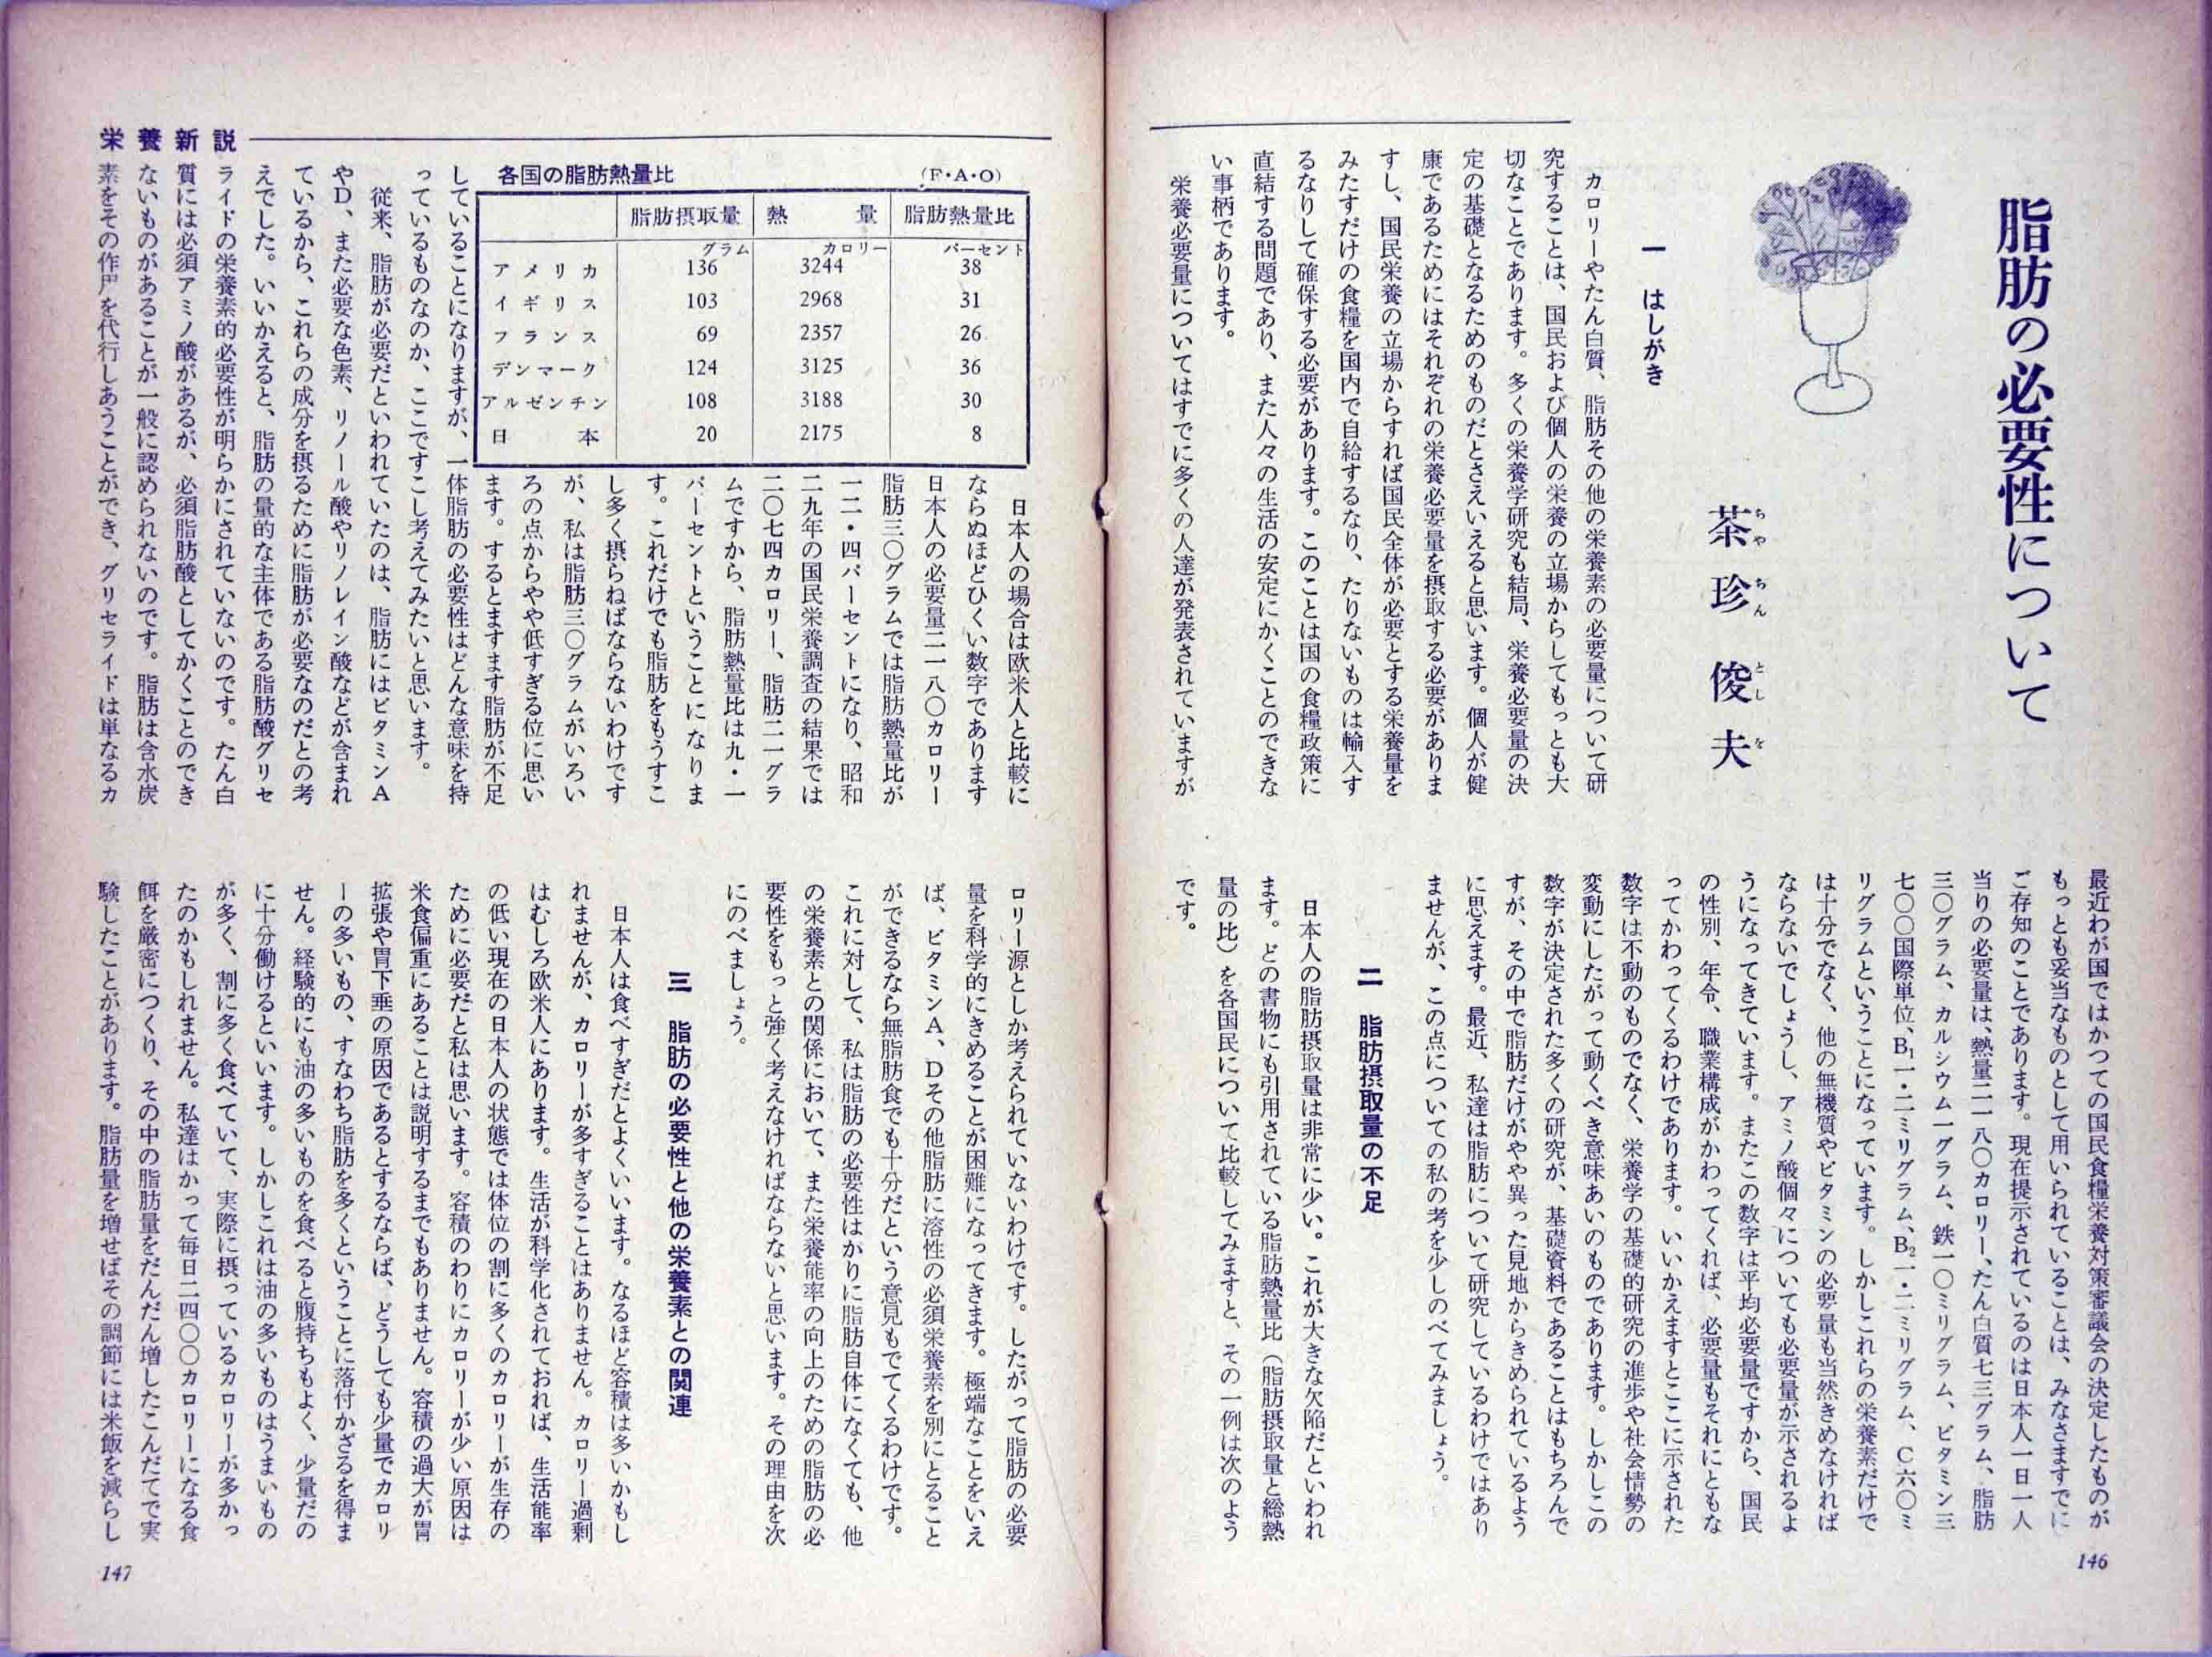 脂肪の必要性について
茶珍俊夫
ちやちんとしを
一 はしがき
カロリーやたん白質、脂肪その他の栄養素の必要量について研
究することは、国民および個人の栄養の立場からしてもっとも大
切なことであります。多くの栄養学研究も結局、栄養必要量の決
定の基礎となるためのものだとさえいえると思います。個人が健
康であるためにはそれぞれの栄養必要量を摂取する必要がありま
すし、国民栄養の立場からすれば国民全体が必要とする栄養量を
みたすだけの食糧を国内で自給するなり、たりないものは輸入す
るなりして確保する必要があります。このことは国の食糧政策に
直結する問題であり、また人々の生活の安定にかくことのできな
い事柄であります。
栄養必要量についてはすでに多くの人達が発表されていますが
最近わが国ではかつての国民食糧栄養対策審議会の決定したものが
もっとも妥当なものとして用いられていることは、みなさますでに
ご存知のことであります。現在提示されているのは日本人一日一人
当りの必要量は、熱量二一八〇カロリー、たん白質七三グラム、脂肪
三〇グラム、カルシウム一グラム、鉄一〇ミリグラム、ビタミン三
七〇〇国際単位、B₁一・二ミリグラム、B₂一・二ミリグラム、C六〇ミ
リグラムということになっています。しかしこれらの栄養素だけで
は十分でなく、他の無機質やビタミンの必要量も当然きめなければ
ならないでしょうし、アミノ酸個々についても必要量が示されるよ
うになってきています。またこの数字は平均必要量ですから、国民
の性別、年令、職業構成がかわってくれば、必要量もそれにともな
ってかわってくるわけであります。いいかえますとここに示された
数字は不動のものでなく、栄養学の基礎的研究の進歩や社会情勢の
変動にしたがって動くべき意味あいのものであります。しかしこの
数字が決定された多くの研究が、基礎資料であることはもちろんで
すが、その中で脂肪だけがやや異った見地からきめられているよう
に思えます。最近、私達は脂肪について研究しているわけではあり
ませんが、この点についての私の考を少しのべてみましょう。
二 脂肪摂取量の不足
日本人の脂肪摂取量は非常に少い。これが大きな欠陥だといわれ
ます。どの書物にも引用されている脂肪熱量比（脂肪摂取量と総熱
量の比）を各国民について比較してみますと、その一例は次のよう
です。
146
各国の脂肪熱量比 (F・A・O)
脂肪摂取量 熱量 脂肪熱量比
グラム カロリー パーセント
アメリカ 136 3244 38
イギリス 103 2968 31
フランス 69 2357 26
デンマーク 124 3125 36
アルゼンチン 108 3188 30
日本 20 2175 8
日本人の場合は欧米人と比較に
ならぬほどひくい数字であります
日本人の必要量二一八〇カロリー
脂肪三〇グラムでは脂肪熱量比が
一二・四パーセントになり、昭和
二九年の国民栄養調査の結果では
二〇七四カロリー、脂肪二一グラ
ムですから、脂肪熱量比は九・一
パーセントということになりま
す。これだけでも脂肪をもうすこ
し多く摂らねばならないわけです
が、私は脂肪三〇グラムがいろい
ろの点からやや低すぎる位に思い
ます。するとますます脂肪が不足
していることになりますが、一体脂肪の必要性はどんな意味を持
っているものなのか、ここですこし考えてみたいと思います。
従来、脂肪が必要だといわれていたのは、脂肪にはビタミンA
やD、また必要な色素、リノール酸やリノレイン酸などが含まれ
ているから、これらの成分を摂るために脂肪が必要なのだとの考
えでした。いいかえると、脂肪の量的な主体である脂肪酸グリセ
ライドの栄養素的必要性が明らかにされていないのです。たん白
質には必須アミノ酸があるが、必須脂肪酸としてかくことのでき
ないものがあることが一般に認められないのです。脂肪は含水炭
素をその作用を代行しあうことができ、グリセライドは単なるカ
栄養新説
ロリー源としか考えられていないわけです。したがって脂肪の必要
量を科学的にきめることが困難になってきます。極端なことをいえ
ば、ビタミンA、Dその他脂肪に溶性の必須栄養素を別にとること
ができるなら無脂肪食でも十分だという意見もでてくるわけです。
これに対して、私は脂肪の必要性はかりに脂肪自体になくても、他
の栄養素との関係において、また栄養能率の向上のための脂肪の必
要性をもっと強く考えなければならないと思います。その理由を次
にのべましょう。
三 脂肪の必要性と他の栄養素との関連
日本人は食べすぎだとよくいいます。なるほど容積は多いかもし
れませんが、カロリーが多すぎることはありません。カロリー過剰
はむしろ欧米人にあります。生活が科学化されておれば、生活能率
の低い現在の日本人の状態では体位の割に多くのカロリーが生存の
ために必要だと私は思います。容積のわりにカロリーが少い原因は
米食偏重にあることは説明するまでもありません。容積の過大が胃
拡張や胃下垂の原因であるとするならば、どうしても少量でカロリ
ーの多いもの、すなわち脂肪を多くということに落付かざるを得ま
せん。経験的にも油の多いものを食べると腹持ちもよく、少量だの
に十分働けるといいます。しかしこれは油の多いものはうまいもの
が多く、割に多く食べていて、実際に摂っているカロリーが多かっ
たのかもしれません。私達はかって毎日二四〇〇カロリーになる食
餌を厳密につくり、その中の脂肪量をだんだん増したこんだてで実
験したことがあります。脂肪量を増せばその調節には米飯を減らし
147